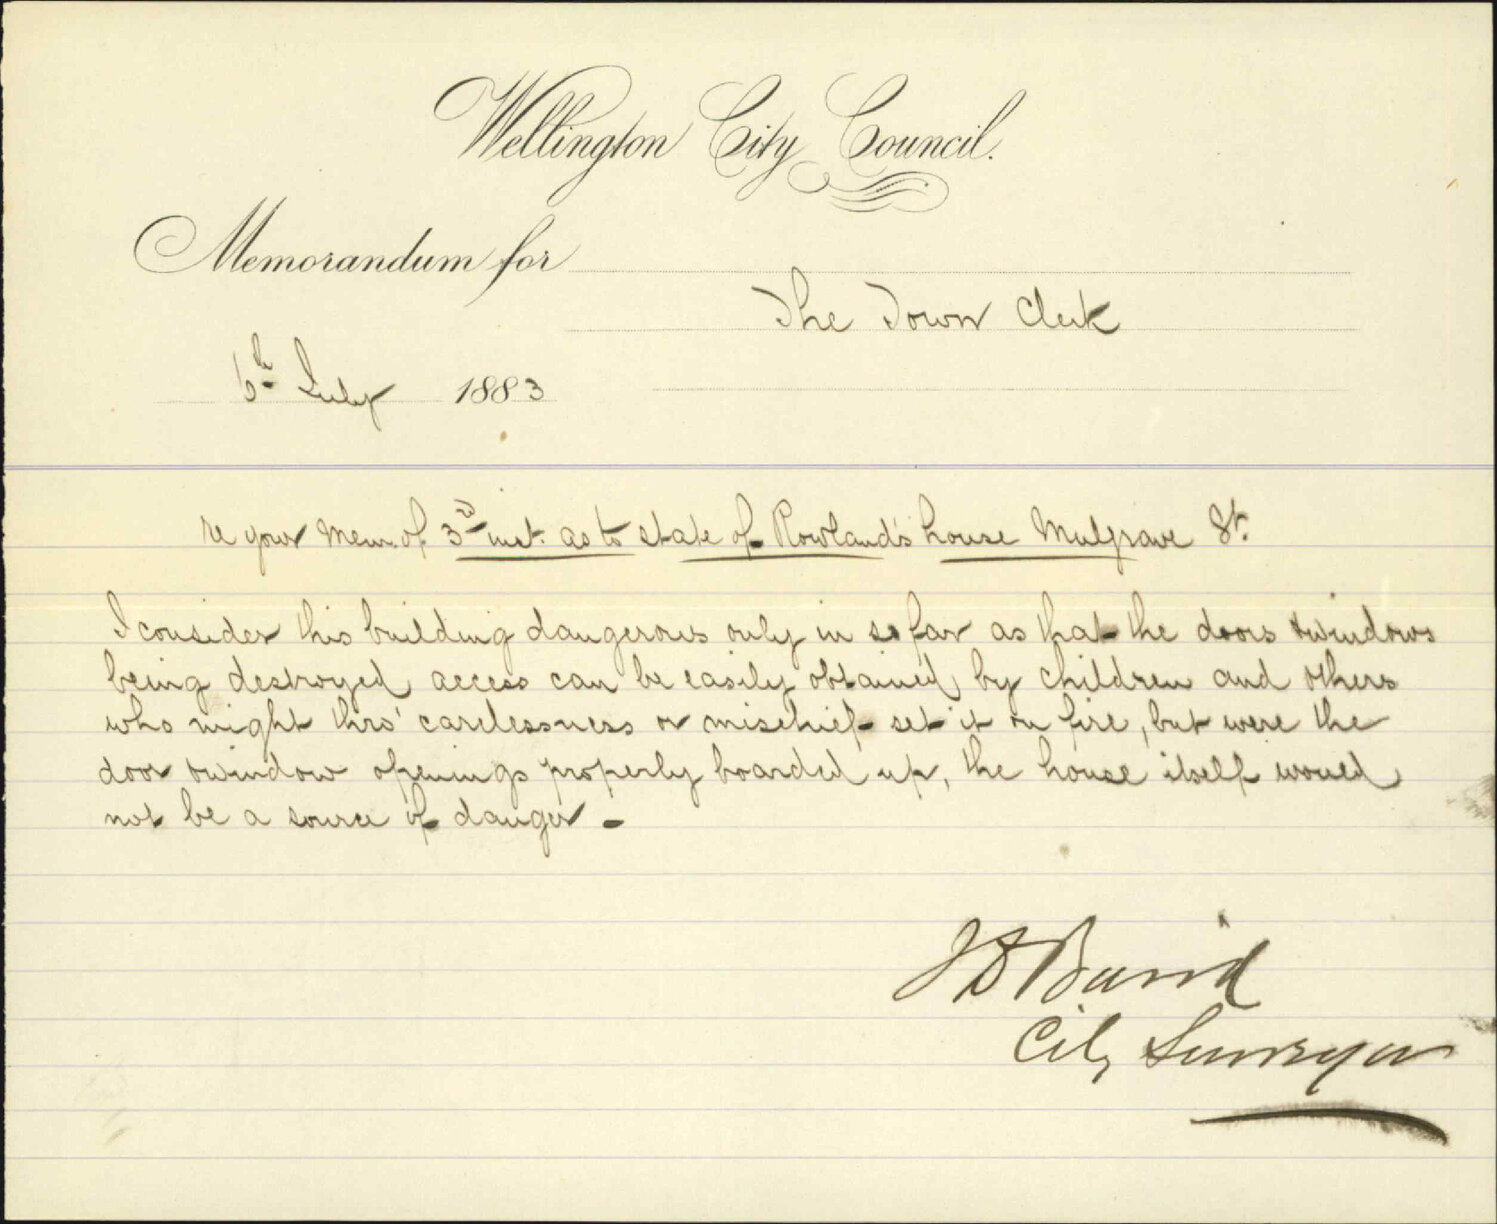 Wellington City Council.
Memorandum for
The Town Clerk
6th July 1883
re your mem. of 3rd inst. as to state of Rowland's house Mulgrave St.
I consider this building dangerous only in so far as that the doors & windows
being destroyed, access can be easily obtained, by children and others
who might thro' carelessness or mischief set it on fire, but were the
door & window openings properly boarded up, the house itself would
not be a source of danger -
J D Baird
City Surveyor